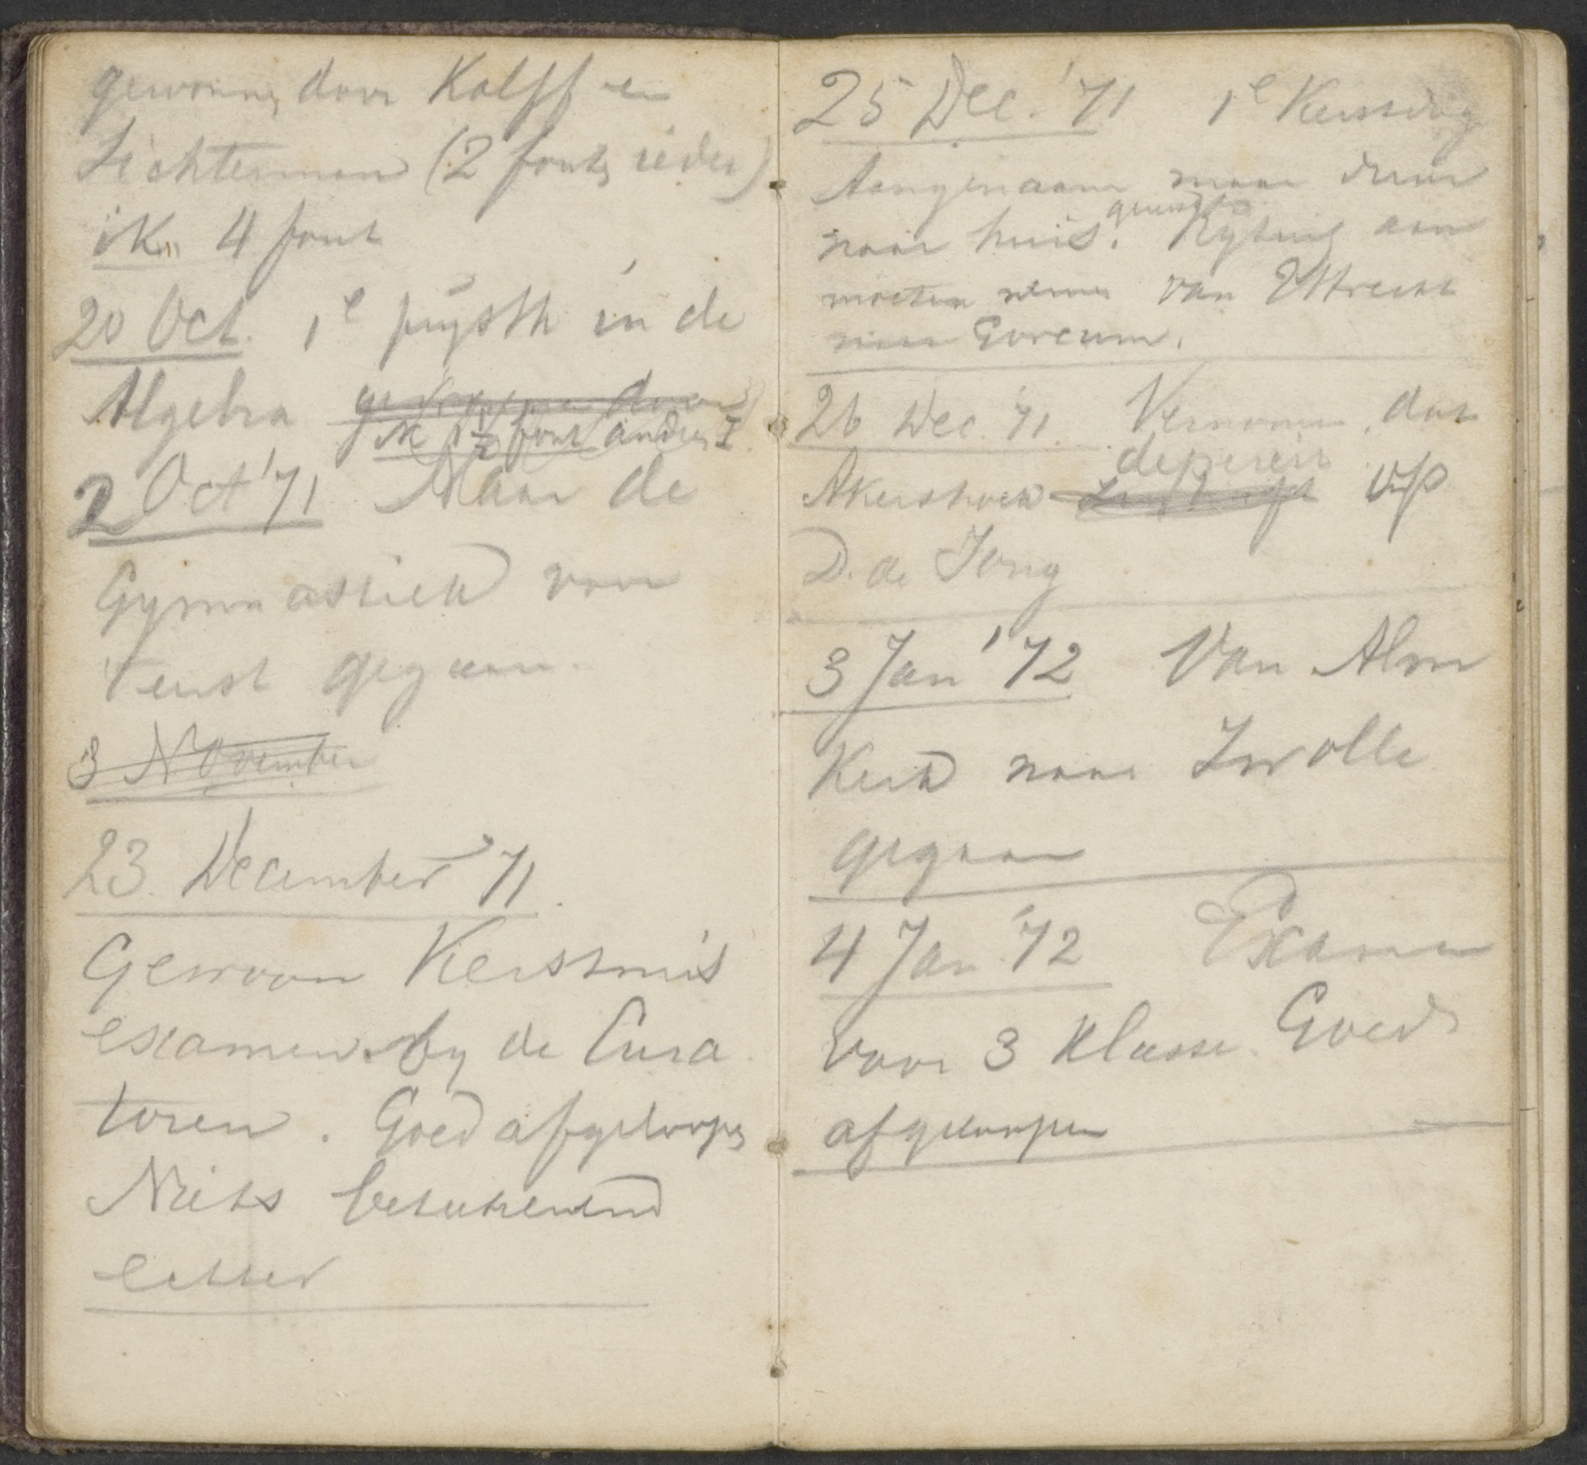 gewonnen door Kolff en
Lichterman (2 fout, ieder)
ik 4 fout
20 Oct. 1e prysth in de
Algebra
ik 1½ fout ander I
2 Oct '71 Naar de
Gymnastiek voor
't eerst gegaan.
3 November
23. December '71.
Gewoon Kerssmis
examen by de Cura
toren. Goed afgeloopen
Niets beteekenend
echter
25 Dec. '71 1e Kersdag
Aangenaam maar
naar huis. Rytuig aan
moeten nemen van Uttrecht
naar Gorcum.
26 Dec. '71. Vernomen, dat
Akershoek
D. de Jong
3 Jan '72 Van Alm
Kerk naar Zwolle
gegaan
4 Jan '72 Examen
voor 3 Klasse. Goed
afgeloopen